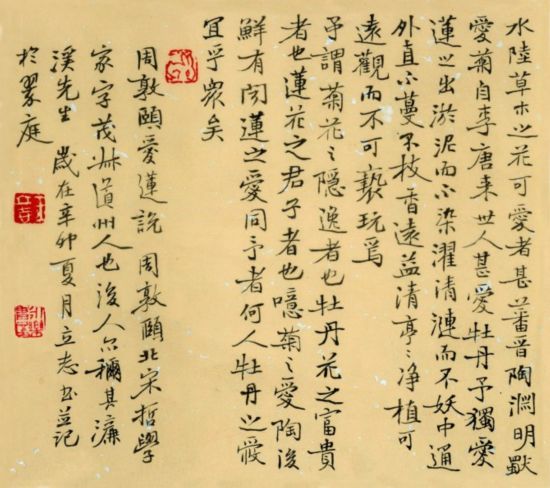 水陸草木之花可愛者甚蕃晋陶淵明獨
愛菊自李唐来世人甚愛牡丹予獨愛
蓮之出淤泥而不染濯清漣而不妖中通
外直不蔓不枝香遠益清亭〻净植可
遠觀而不可褻玩焉
予謂菊花之隐逸者也牡丹花之富貴
者也蓮花之君子者也噫菊之愛陶後
鮮有闻蓮之愛同予者何人牡丹之愛
宜乎衆矣
周敦頤愛蓮説 周敦頤北宋哲學
家字茂叔道州人也後人亦稱其濂
溪先生 歲在辛卯夏月立志书並记
於翠庭